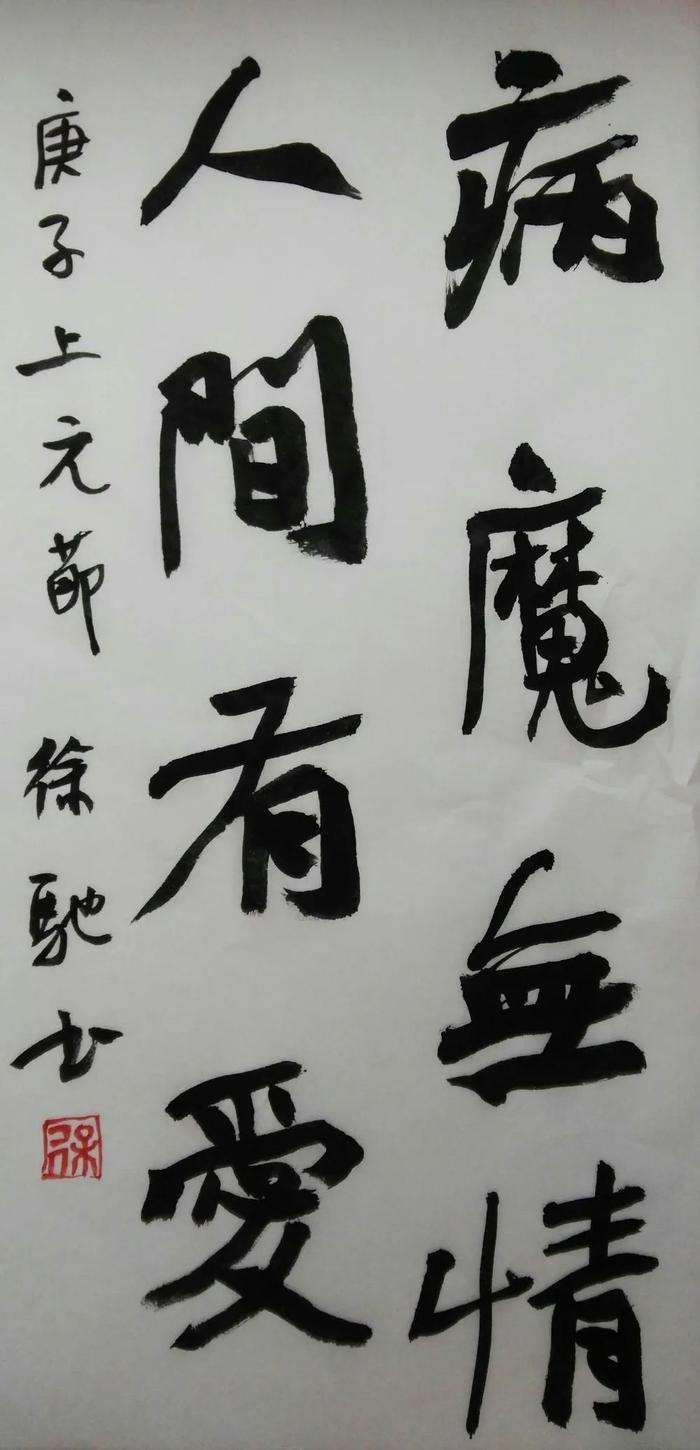 病魔無情
人間有愛
庚子上元節 徐馳书